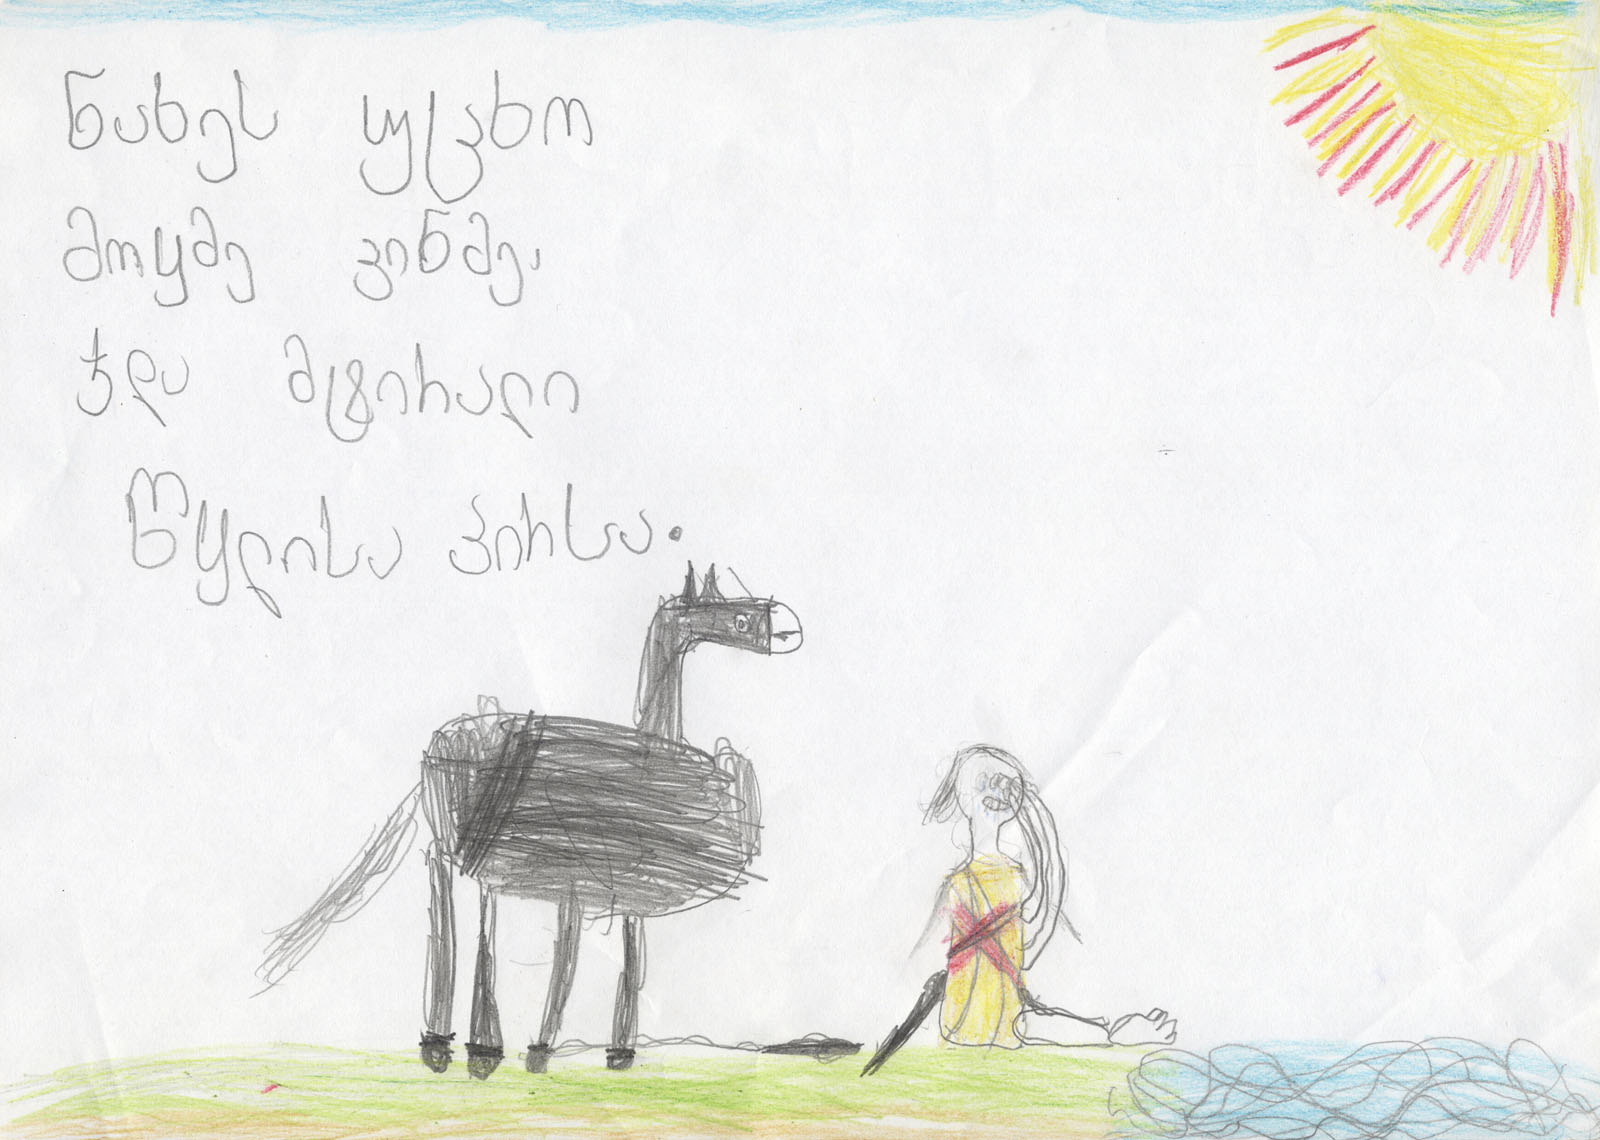 ნახეს უცხო
მოყმე ვინმე,
ჯდა მტირალი
წყლისა პირსა.